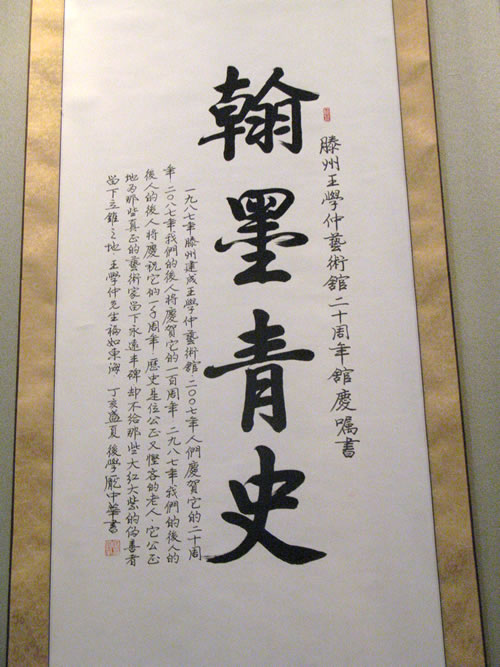 滕州王學仲藝術舘二十周年舘慶囑書
翰墨青史
一九八七年滕州建成王學仲藝術舘 二〇〇七年人們慶賀它的二十周
年 二〇八七年我們的後人將慶賀它的一百周年 二九八七年我們的後人的
後人的後人將慶祝它的一千周年 歷史是位公正又慳吝的老人．它公正
地为那些真正的藝術家留下永遠丰碑 却不给那些大红大紫的伪善者
留下立錐之地 王學仲先生福如東海 丁亥盛夏 後學龐中華書